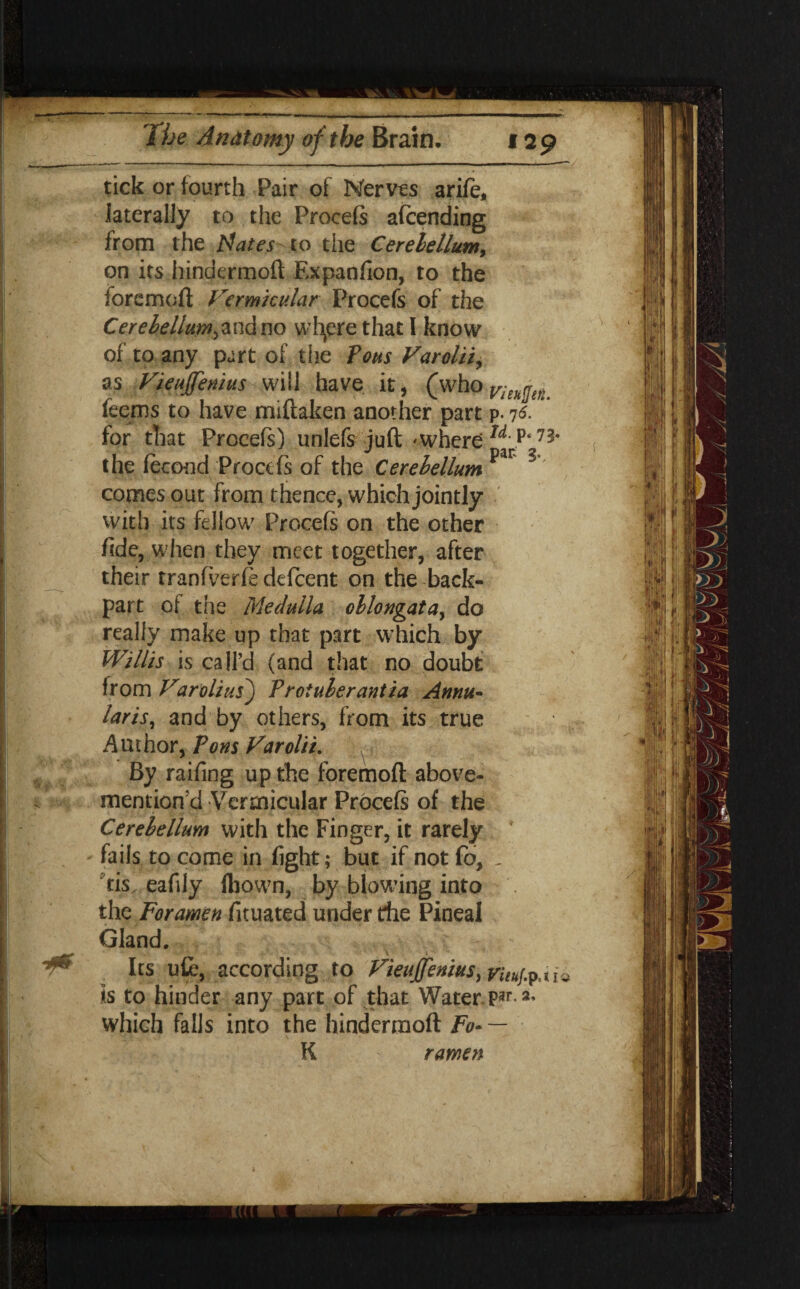 The Anatomy of the Brain. 129
tick or fourth Pair of Nerves ariſe,
laterally to the Proceſs aſcending
from the Nates to the Cerebellum,
on its hindermoſt Expanſion, to the
foremoſt Vermicular Proceſs of the
Cerebellum, and no where that I know
of to any part of the Pons Varolii,
as Vieuſſenius will have it, (who Vieuſſen.
ſeems to have miſtaken another part p. 76.
for that Proceſs) unleſs juſt where Id. p. 73.
the ſecond Proceſs of the Cerebellum par. 3.
comes out from thence, which jointly
with its fellow Proceſs on the other
ſide, when they meet together, after
their tranſverſe deſcent on the back-
part of the Medulla oblongata, do
really make up that part which by
Willis is call'd (and that no doubt
from Varolius) Protuberantia Annu-
laris, and by others, from its true
Author, Pons Varolii.
By raiſing up the foremoſt above-
mention'd Vermicular Proceſs of the
Cerebellum with the Finger, it rarely
fails to come in ſight; but if not ſo,
'tis eaſily ſhown, by blowing into
the Foramen ſituated under the Pineal
Gland.
Its uſe, according to Vieuſſenius, Vieuſ. p.
is to hinder any part of that Water par. 2.
which falls into the hindermoſt Fo-
K ramen